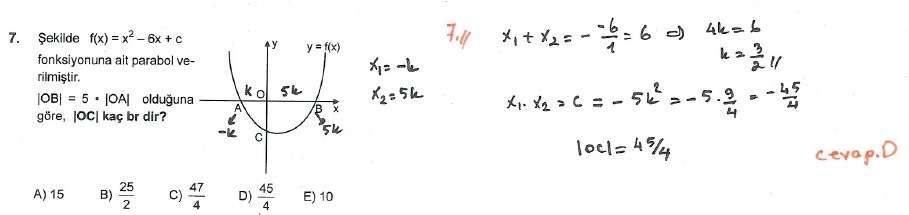 7. Şekilde f(x) = x² – 6x + c
fonksiyonuna ait parabol ve-
rilmiştir.
|OB| = 5 • |OA| olduğuna
göre, |OC| kaç br dir?
y
y = f(x)
k O 5k
A B x
-k 5k
C
x₁ = -k
x₂ = 5k
A) 15 B) 25/2 C) 47/4 D) 45/4 E) 10
7.// x₁ + x₂ = - -6/1 = 6 ⇒ 4k = 6
k = 3/2 //
x₁ . x₂ = c = - 5k² = -5 . 9/4 = -45/4
|oc| = 45/4
cevap.D